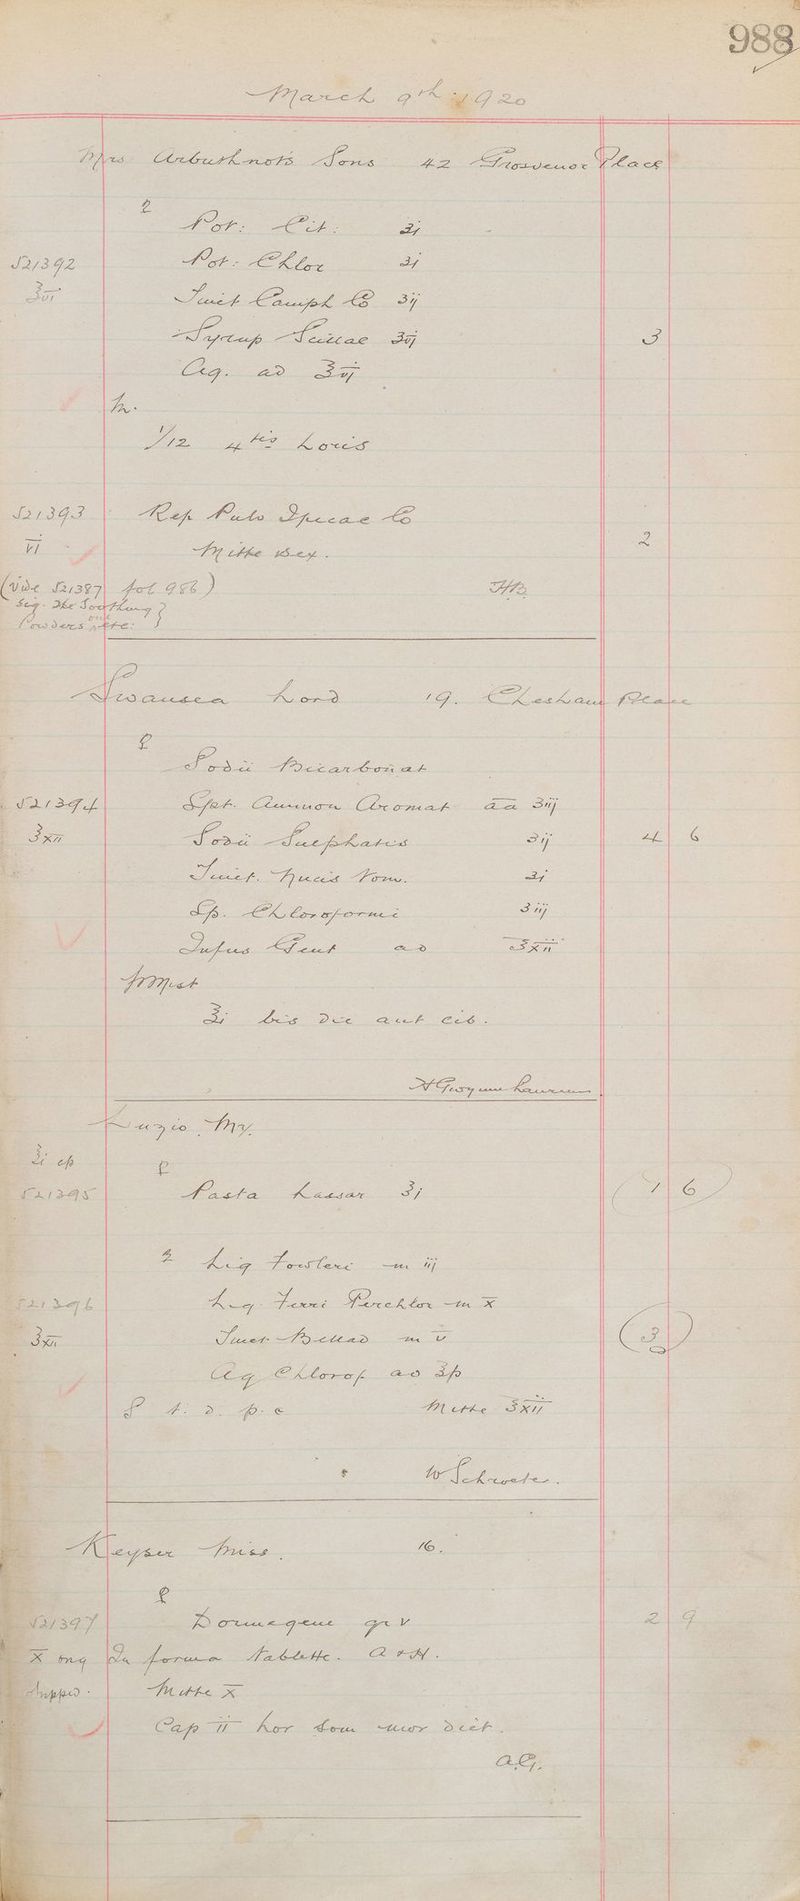 988
March 9th 1920
Mrs Arbuthnot's Sons 42 Grosvenor Place
℞
Pot: Cit: ʒi
521392 Pot: Chlor ʒi
℥vi Tinct Camph Co ʒij
Syrup Scillae ʒvj 3
Aq. ad ℥vj
M.
1/12 4tis horis
521393 Rep Pulv Ipecac Co
vi Mitte sex. 2
(vide 521387 fol 986) HB
Sig. The Soothing
Powders one etc:
Swansea Lord 19. Chesham Place
℞
Sodii Bicarbonat
521394 Spt. Ammon Aromat āā ʒiij
℥xii Sodii Sulphatis ʒij 4 6
Tinct. Nucis Vom. ʒi
Sp. Chloroformi ʒiij
Infus Gent ad ℥xii
Ft Mist
℥i bis die ant cib.
A Gwynne Lawrence
Luzio. Mr.
℥i cp
℞
521395 Pasta Lassar ℥i 1 6
℞ Liq Fowleri m iij
521396 Liq. Ferri Perchlor m x
℥xii Tinct Bellad m v 3
Aq Chlorof ad ℥ss
S t. d. p. c Mitte ℥xii
W Schroeter.
Keyser Miss. 16.
℞
521397 Dormegene gr v 2 9
X orig In forma tablette. A & H.
Mitte X
Cap ii hor som mor dict.
A.G.